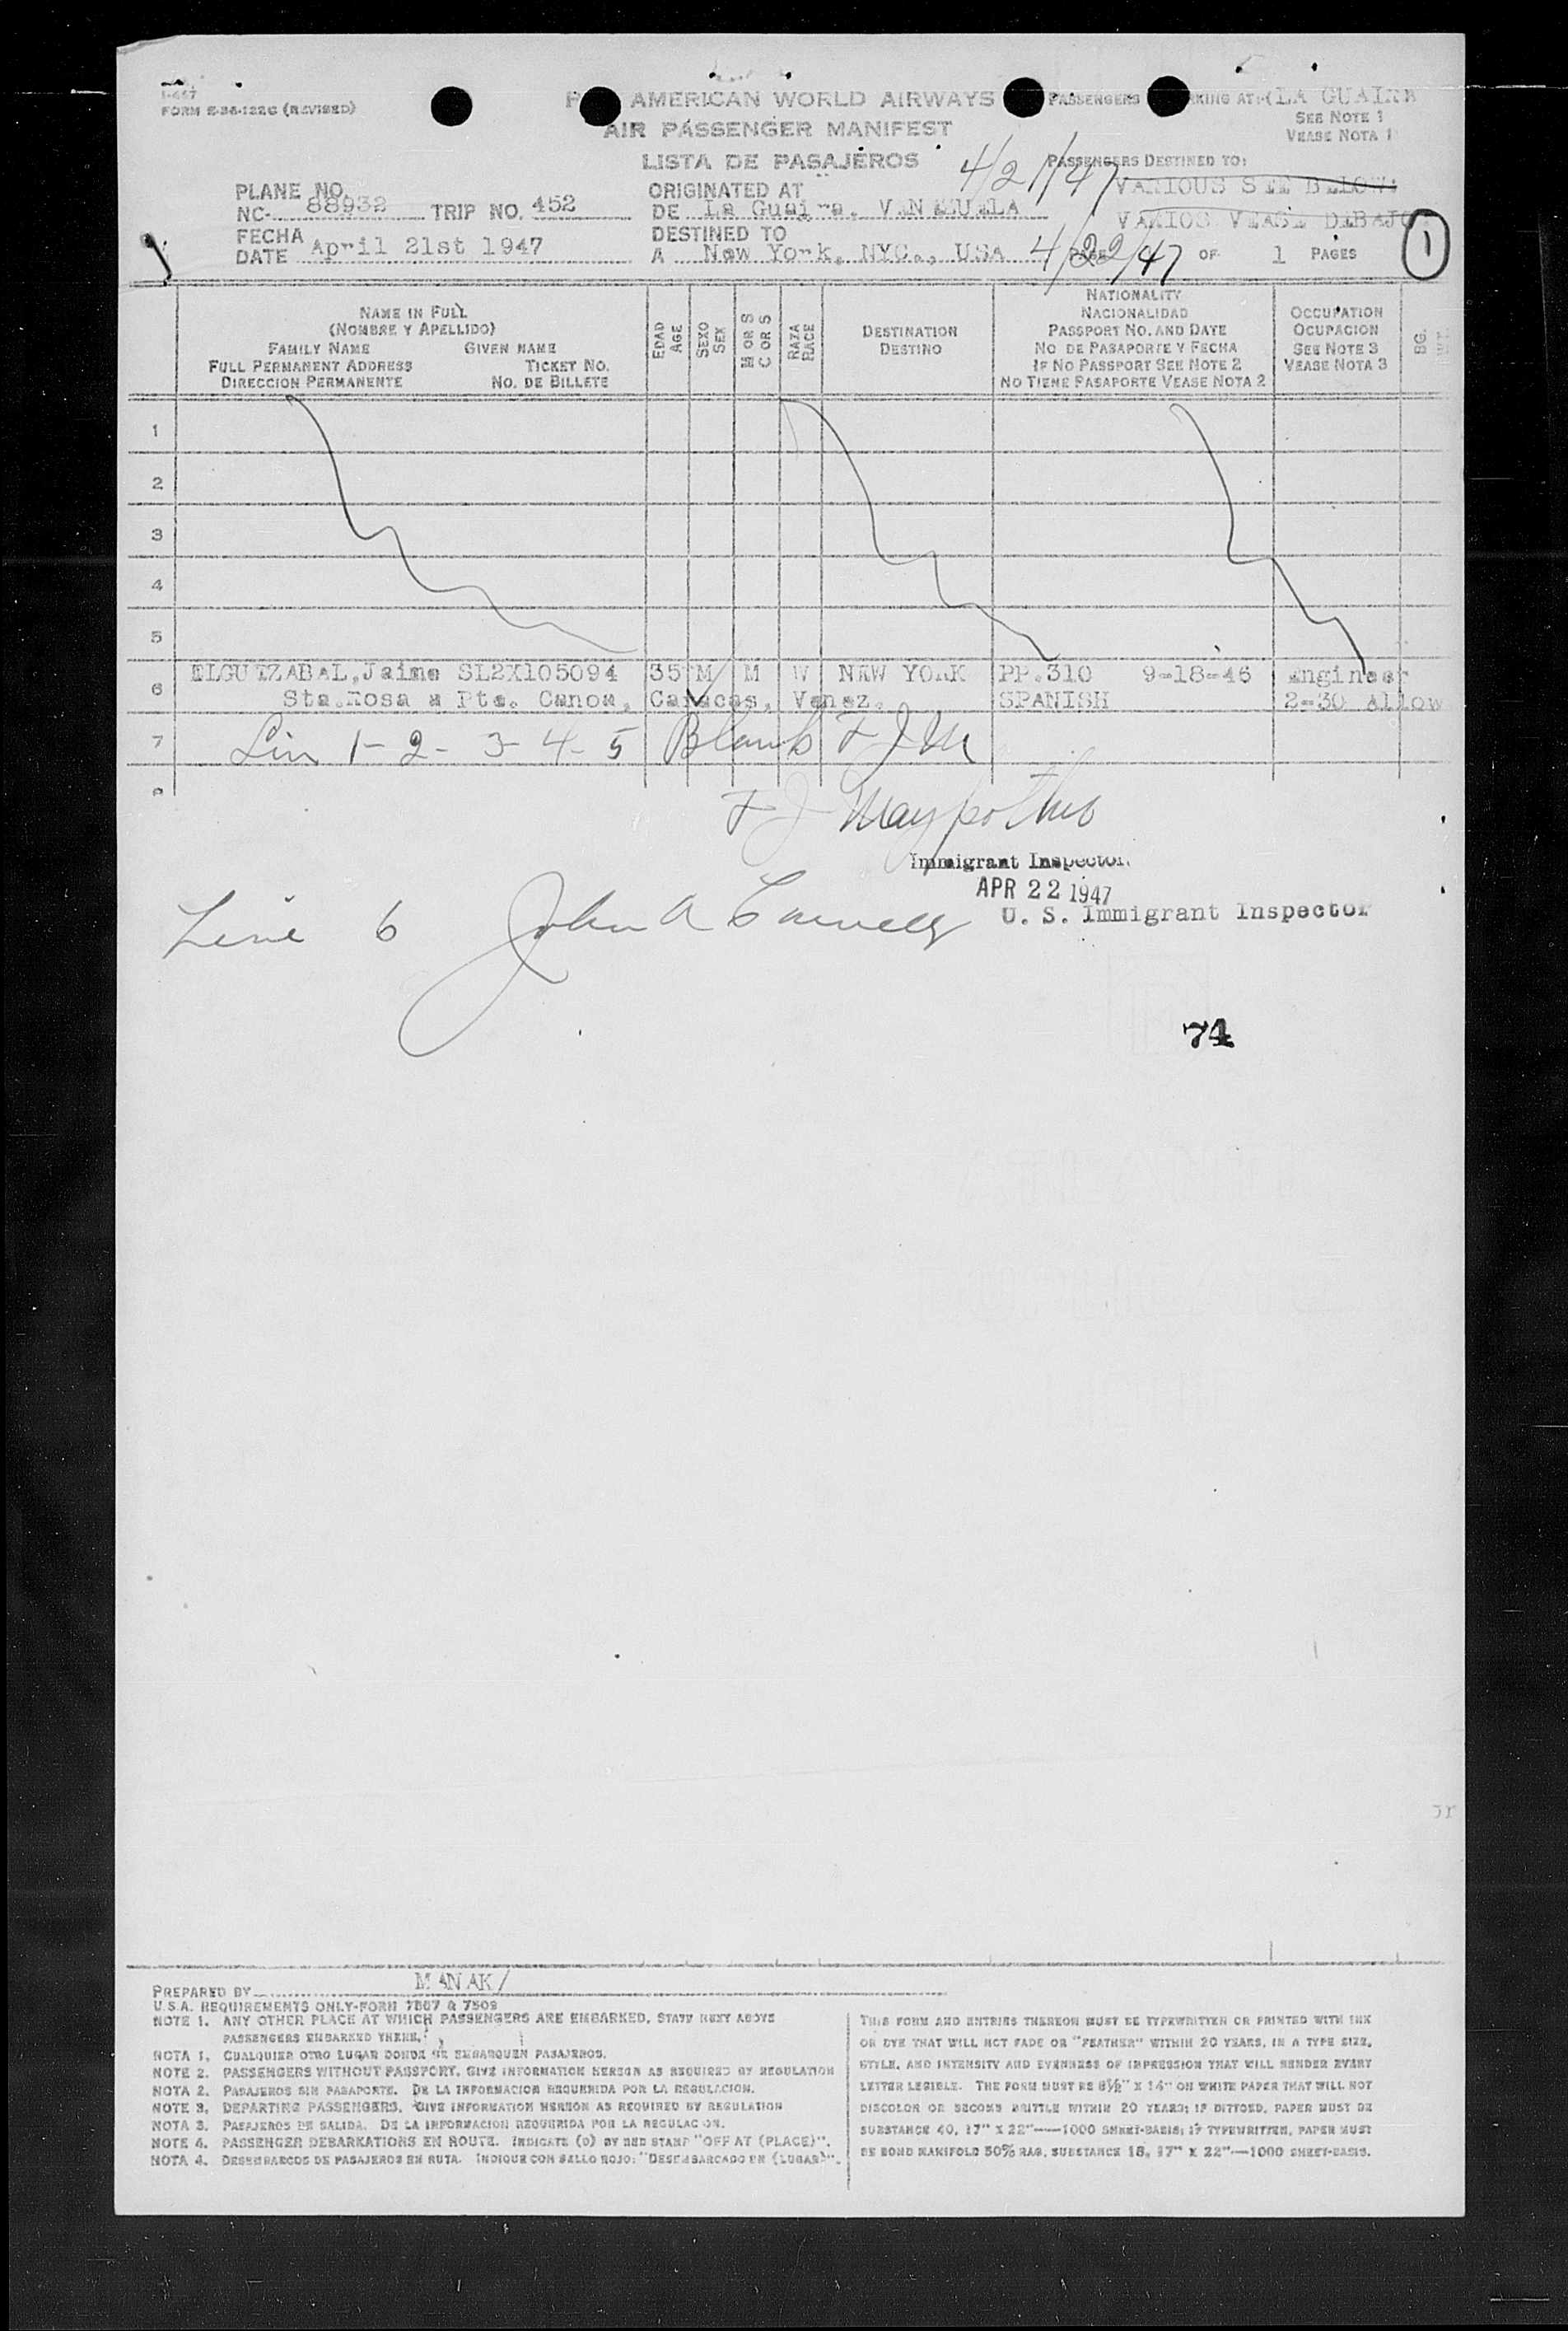 I-457
FORM S-36-122G (REVISED)
AMERICAN WORLD AIRWAYS
AIR PASSENGER MANIFEST
LISTA DE PASAJEROS
PASSENGERS AT: (LA GUAIRA
SEE NOTE 1
VEASE NOTA 1
4/21/47
PASSENGERS DESTINED TO:
VARIOUS SEE BELOW:
VARIOS VEASE DEBAJO
PLANE NO.
NC- 88932 TRIP NO. 452
ORIGINATED AT
DE La Guaira, VENEZUELA
FECHA
DATE April 21st 1947
DESTINED TO
A New York, NYC., USA
4/22/47
PAGE OF 1 PAGES
1
NAME IN FULL
(NOMBRE Y APELLIDO)
FAMILY NAME GIVEN NAME
FULL PERMANENT ADDRESS TICKET NO.
DIRECCION PERMANENTE NO. DE BILLETE
EDAD
AGE
SEXO
SEX
M OR S
C OR S
RAZA
RACE
DESTINATION
DESTINO
NATIONALITY
NACIONALIDAD
PASSPORT NO. AND DATE
NO DE PASAPORTE Y FECHA
IF NO PASSPORT SEE NOTE 2
NO TIENE PASAPORTE VEASE NOTA 2
OCCUPATION
OCUPACION
SEE NOTE 3
VEASE NOTA 3
BG.
WT.
1
2
3
4
5
6 ELGUEZABAL, Jaime SL2X105094 35 M M W NEW YORK PP.310 9-18-46 Engineer
Sta.Rosa a Pte. Canoa, Caracas, Venez. SPANISH 2-30 Allow
7 Lin 1-2-3-4-5 Blank F J M
8
Immigrant Inspector.
APR 22 1947
U. S. Immigrant Inspector
Line 6 John A
74
PREPARED BY MANAK/
U.S.A. REQUIREMENTS ONLY-FORM 7507 & 7509
NOTE 1. ANY OTHER PLACE AT WHICH PASSENGERS ARE EMBARKED, STATE NEXT ABOVE
PASSENGERS EMBARKED THERE.
NOTA 1. CUALQUIER OTRO LUGAR DONDE SE EMBARQUEN PASAJEROS.
NOTE 2. PASSENGERS WITHOUT PASSPORT. GIVE INFORMATION HEREON AS REQUIRED BY REGULATION
NOTA 2. PASAJEROS SIN PASAPORTE. DE LA INFORMACION REQUERIDA POR LA REGULACION.
NOTE 3. DEPARTING PASSENGERS. GIVE INFORMATION HEREON AS REQUIRED BY REGULATION
NOTA 3. PASAJEROS DE SALIDA. DE LA INFORMACION REQUERIDA POR LA REGULACION.
NOTE 4. PASSENGER DEBARKATIONS EN ROUTE. INDICATE (D) BY RED STAMP "OFF AT (PLACE)".
NOTA 4. DESEMBARCOS DE PASAJEROS EN RUTA. INDIQUE CON SELLO ROJO: "DESEMBARCADO EN (LUGAR)".
THIS FORM AND ENTRIES THEREON MUST BE TYPEWRITTEN OR PRINTED WITH INK
OR DYE THAT WILL NOT FADE OR "FEATHER" WITHIN 20 YEARS, IN A TYPE SIZE,
STYLE, AND INTENSITY AND EVENNESS OF IMPRESSION THAT WILL RENDER EVERY
LETTER LEGIBLE. THE FORM MUST BE 8½" X 14" ON WHITE PAPER THAT WILL NOT
DISCOLOR OR BECOME BRITTLE WITHIN 20 YEARS; IF DITTOED, PAPER MUST BE
SUBSTANCE 40, 17" X 22"—1000 SHEET-BASIS; IF TYPEWRITTEN, PAPER MUST
BE BOND MANIFOLD 50% RAG, SUBSTANCE 18, 17" X 22"—1000 SHEET-BASIS.